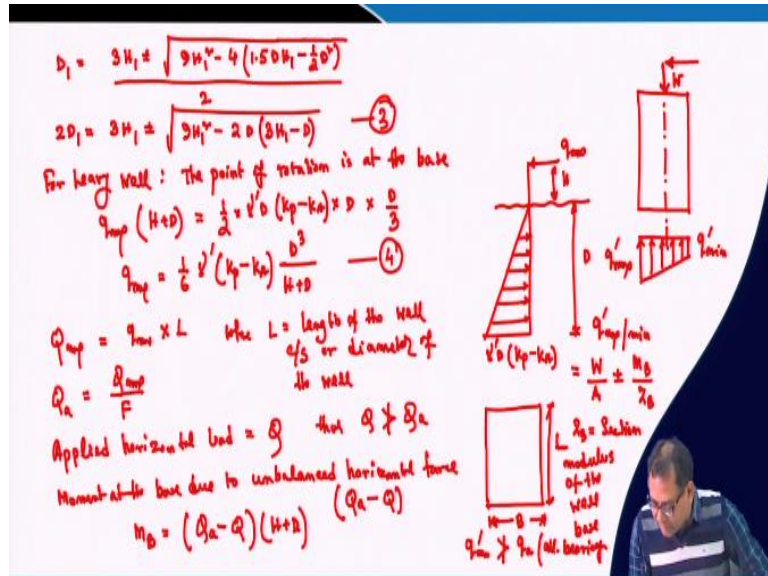 D₁ = 3H₁ ± √(9H₁² - 4(1.5DH₁ - ½D²)) / 2
2D₁ = 3H₁ ± √(9H₁² - 2D(3H₁ - D)) — ③
For heavy wall : The point of rotation is at the base
qmax (H+D) = ½ × γ'D (Kp-KA) × D × D/3
qmax = 1/6 γ' (Kp-KA) D³/(H+D) — ④
Qmax = qmax × L where L = length of the wall
c/s or diameter of
the wall
Qa = Qmax/F
Applied horizontal load = Q thus Q ≯ Qa
Moment at the base due to unbalanced horizontal force
(Qa-Q)
MB = (Qa-Q)(H+D)
qmax
H
D
γ'D (Kp-KA)
W
q'max
q'min
q'max/min
= W/A ± MB/ZB
L
B
ZB = Section
modulus
of the
wall
base
q'max ≯ qa (all. bearing